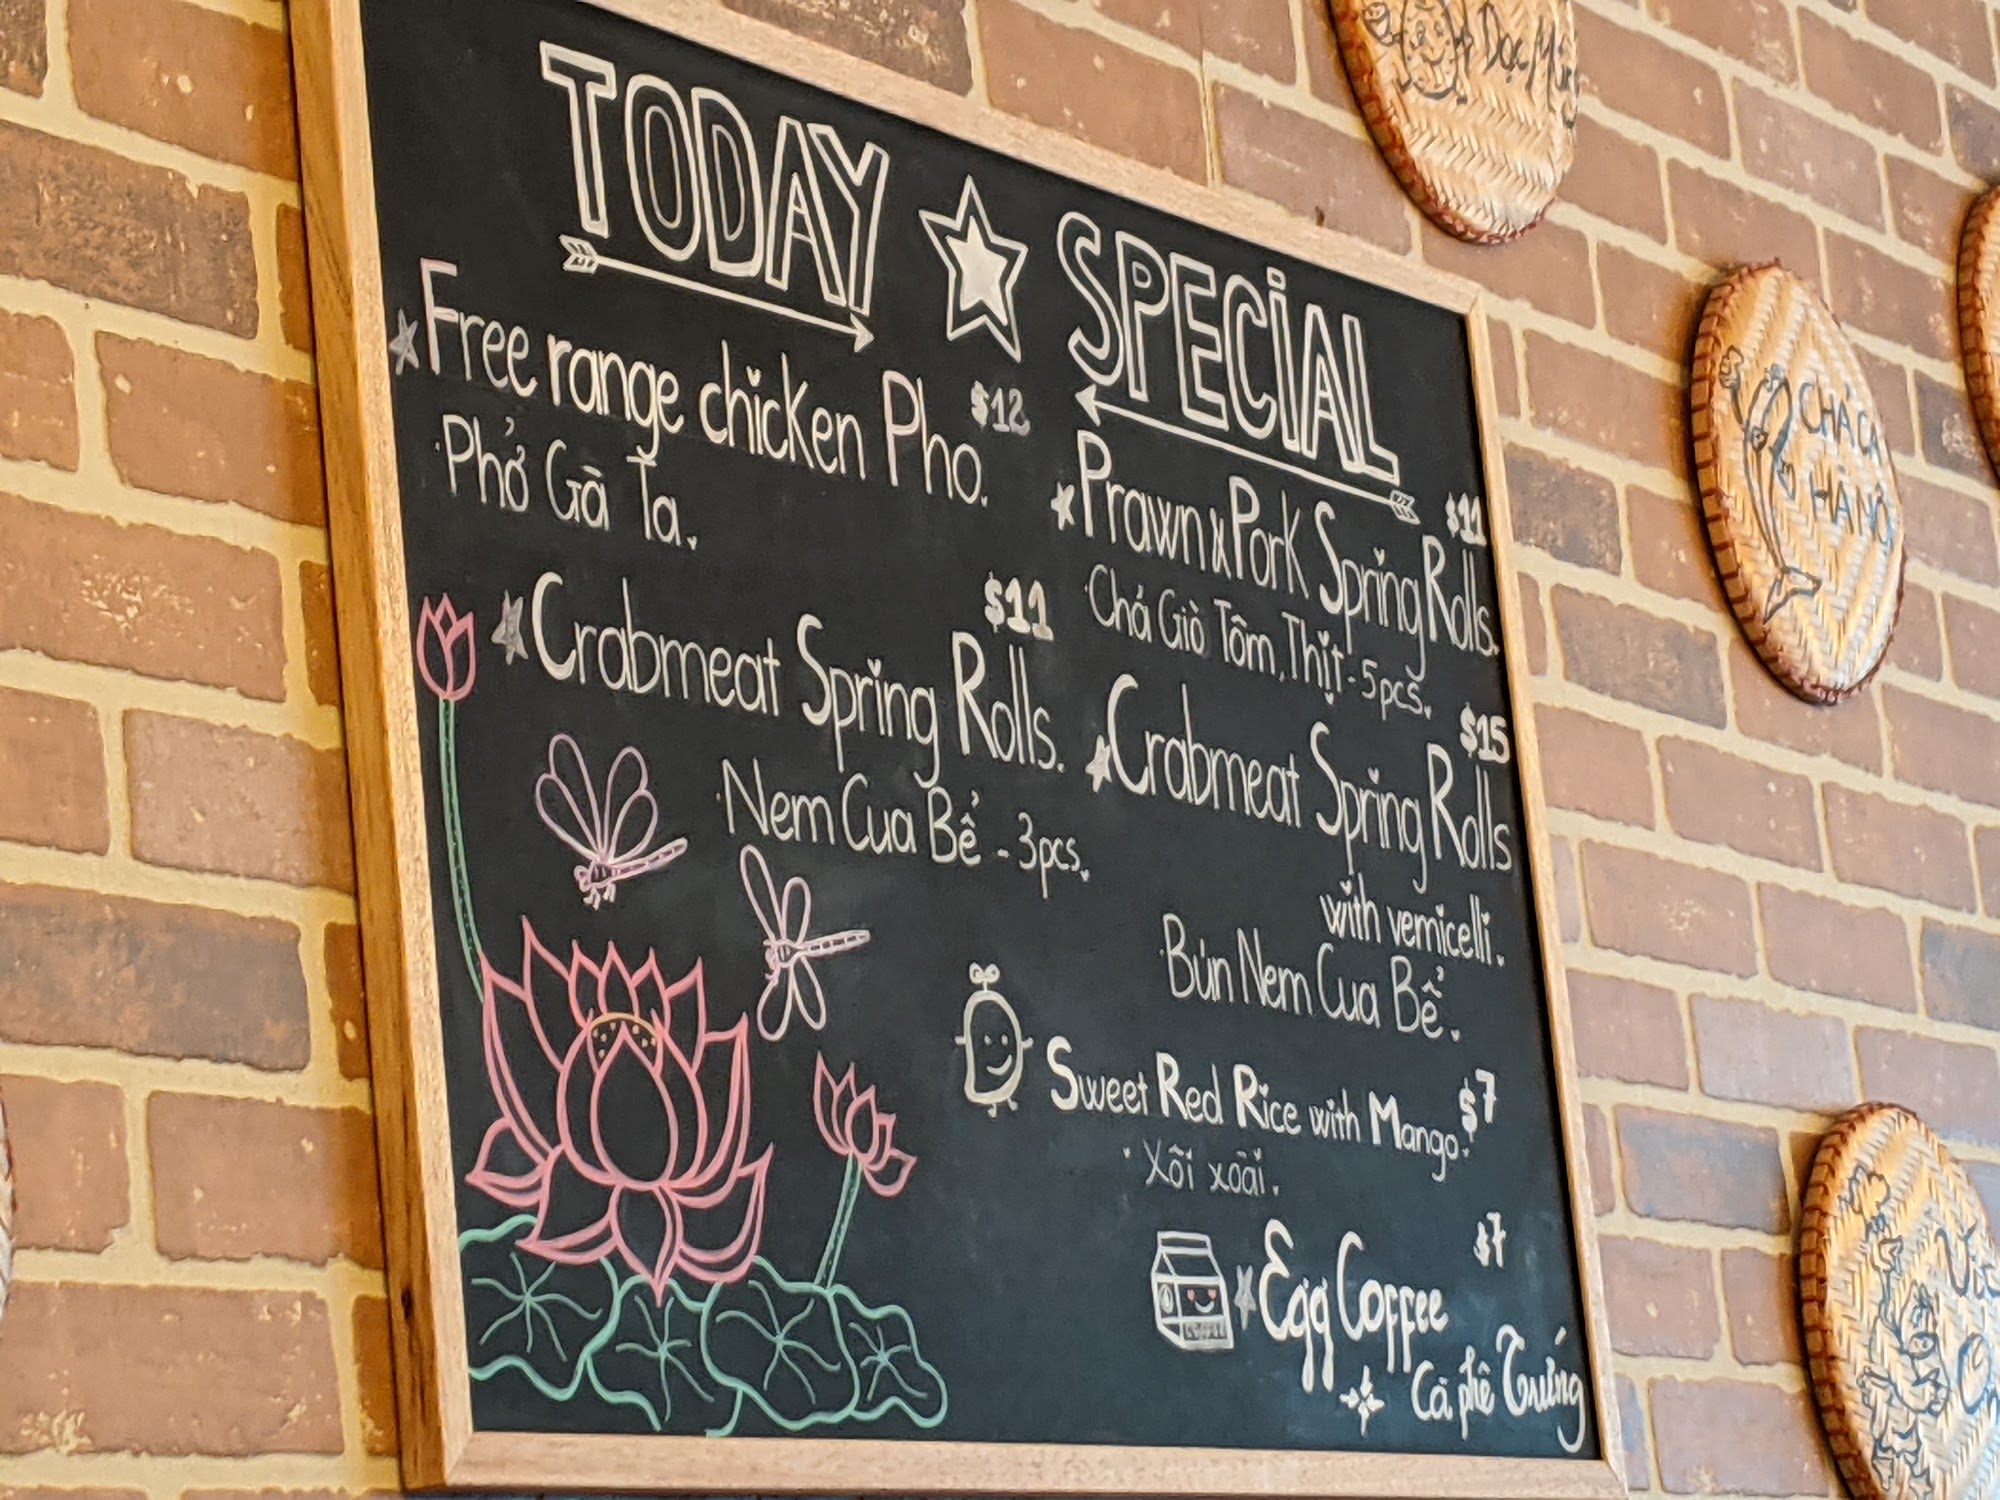 TODAY ☆ SPECIAL
Free range chicken Pho. $12
Phở Gà Ta.
Crabmeat Spring Rolls. $11
Nem Cua Bể - 3pcs.
Prawn x Pork Spring Rolls. $11
Chả Giò Tôm, Thịt - 5pcs.
Crabmeat Spring Rolls $15
with vermicelli.
Bún Nem Cua Bể.
Sweet Red Rice with Mango. $7
Xôi xoài.
Egg Coffee $7
Cà phê Trứng
COFFEE
CHẢ CÁ
HÀ NỘI